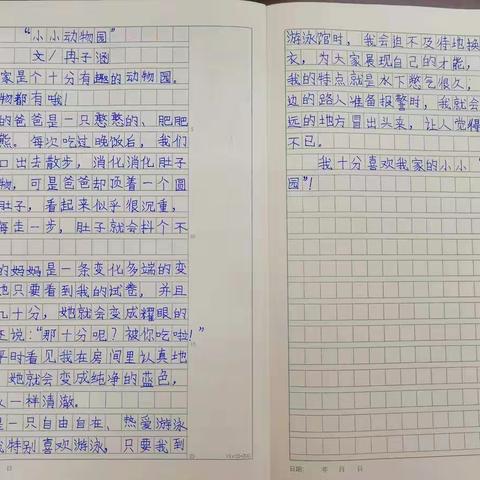 “小小动物园”
文/冉子涵
家是个十分有趣的动物园。
物都有哦！
的爸爸是一只憨憨的、肥肥
熊。每次吃过晚饭后，我们
口出去散步，消化消化肚子
物，可是爸爸却顶着一个圆
肚子，看起来似乎很沉重，
每走一步，肚子就会抖个不
的妈妈是一条变化多端的变
她只要看到我的试卷，并且
九十分，她就会变成耀眼的
还说：“那十分呢？被你吃啦！”
平时看见我在房间里认真地
她就会变成纯净的蓝色，
一样清澈。
是一只自由自在、热爱游泳
我特别喜欢游泳，只要我到
游泳馆时，我会迫不及待地换
衣，为大家展现自己的才能，
我的特点就是水下憋气很久，
边的路人准备报警时，我就会
远的地方冒出头来，让人觉得
不已。
我十分喜欢我家的小小“
园”！
日
日期： 年 月 日